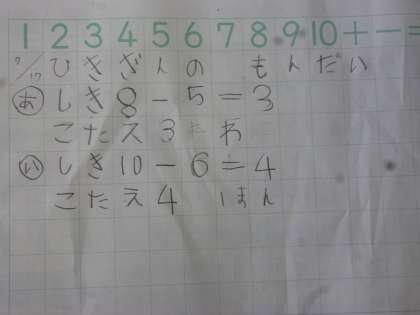 1 2 3 4 5 6 7 8 9 10 + - =
7/17 ひきざんの もんだい
あ しき 8 - 5 = 3
こたえ 3 わ
い しき 10 - 6 = 4
こたえ 4 ほん